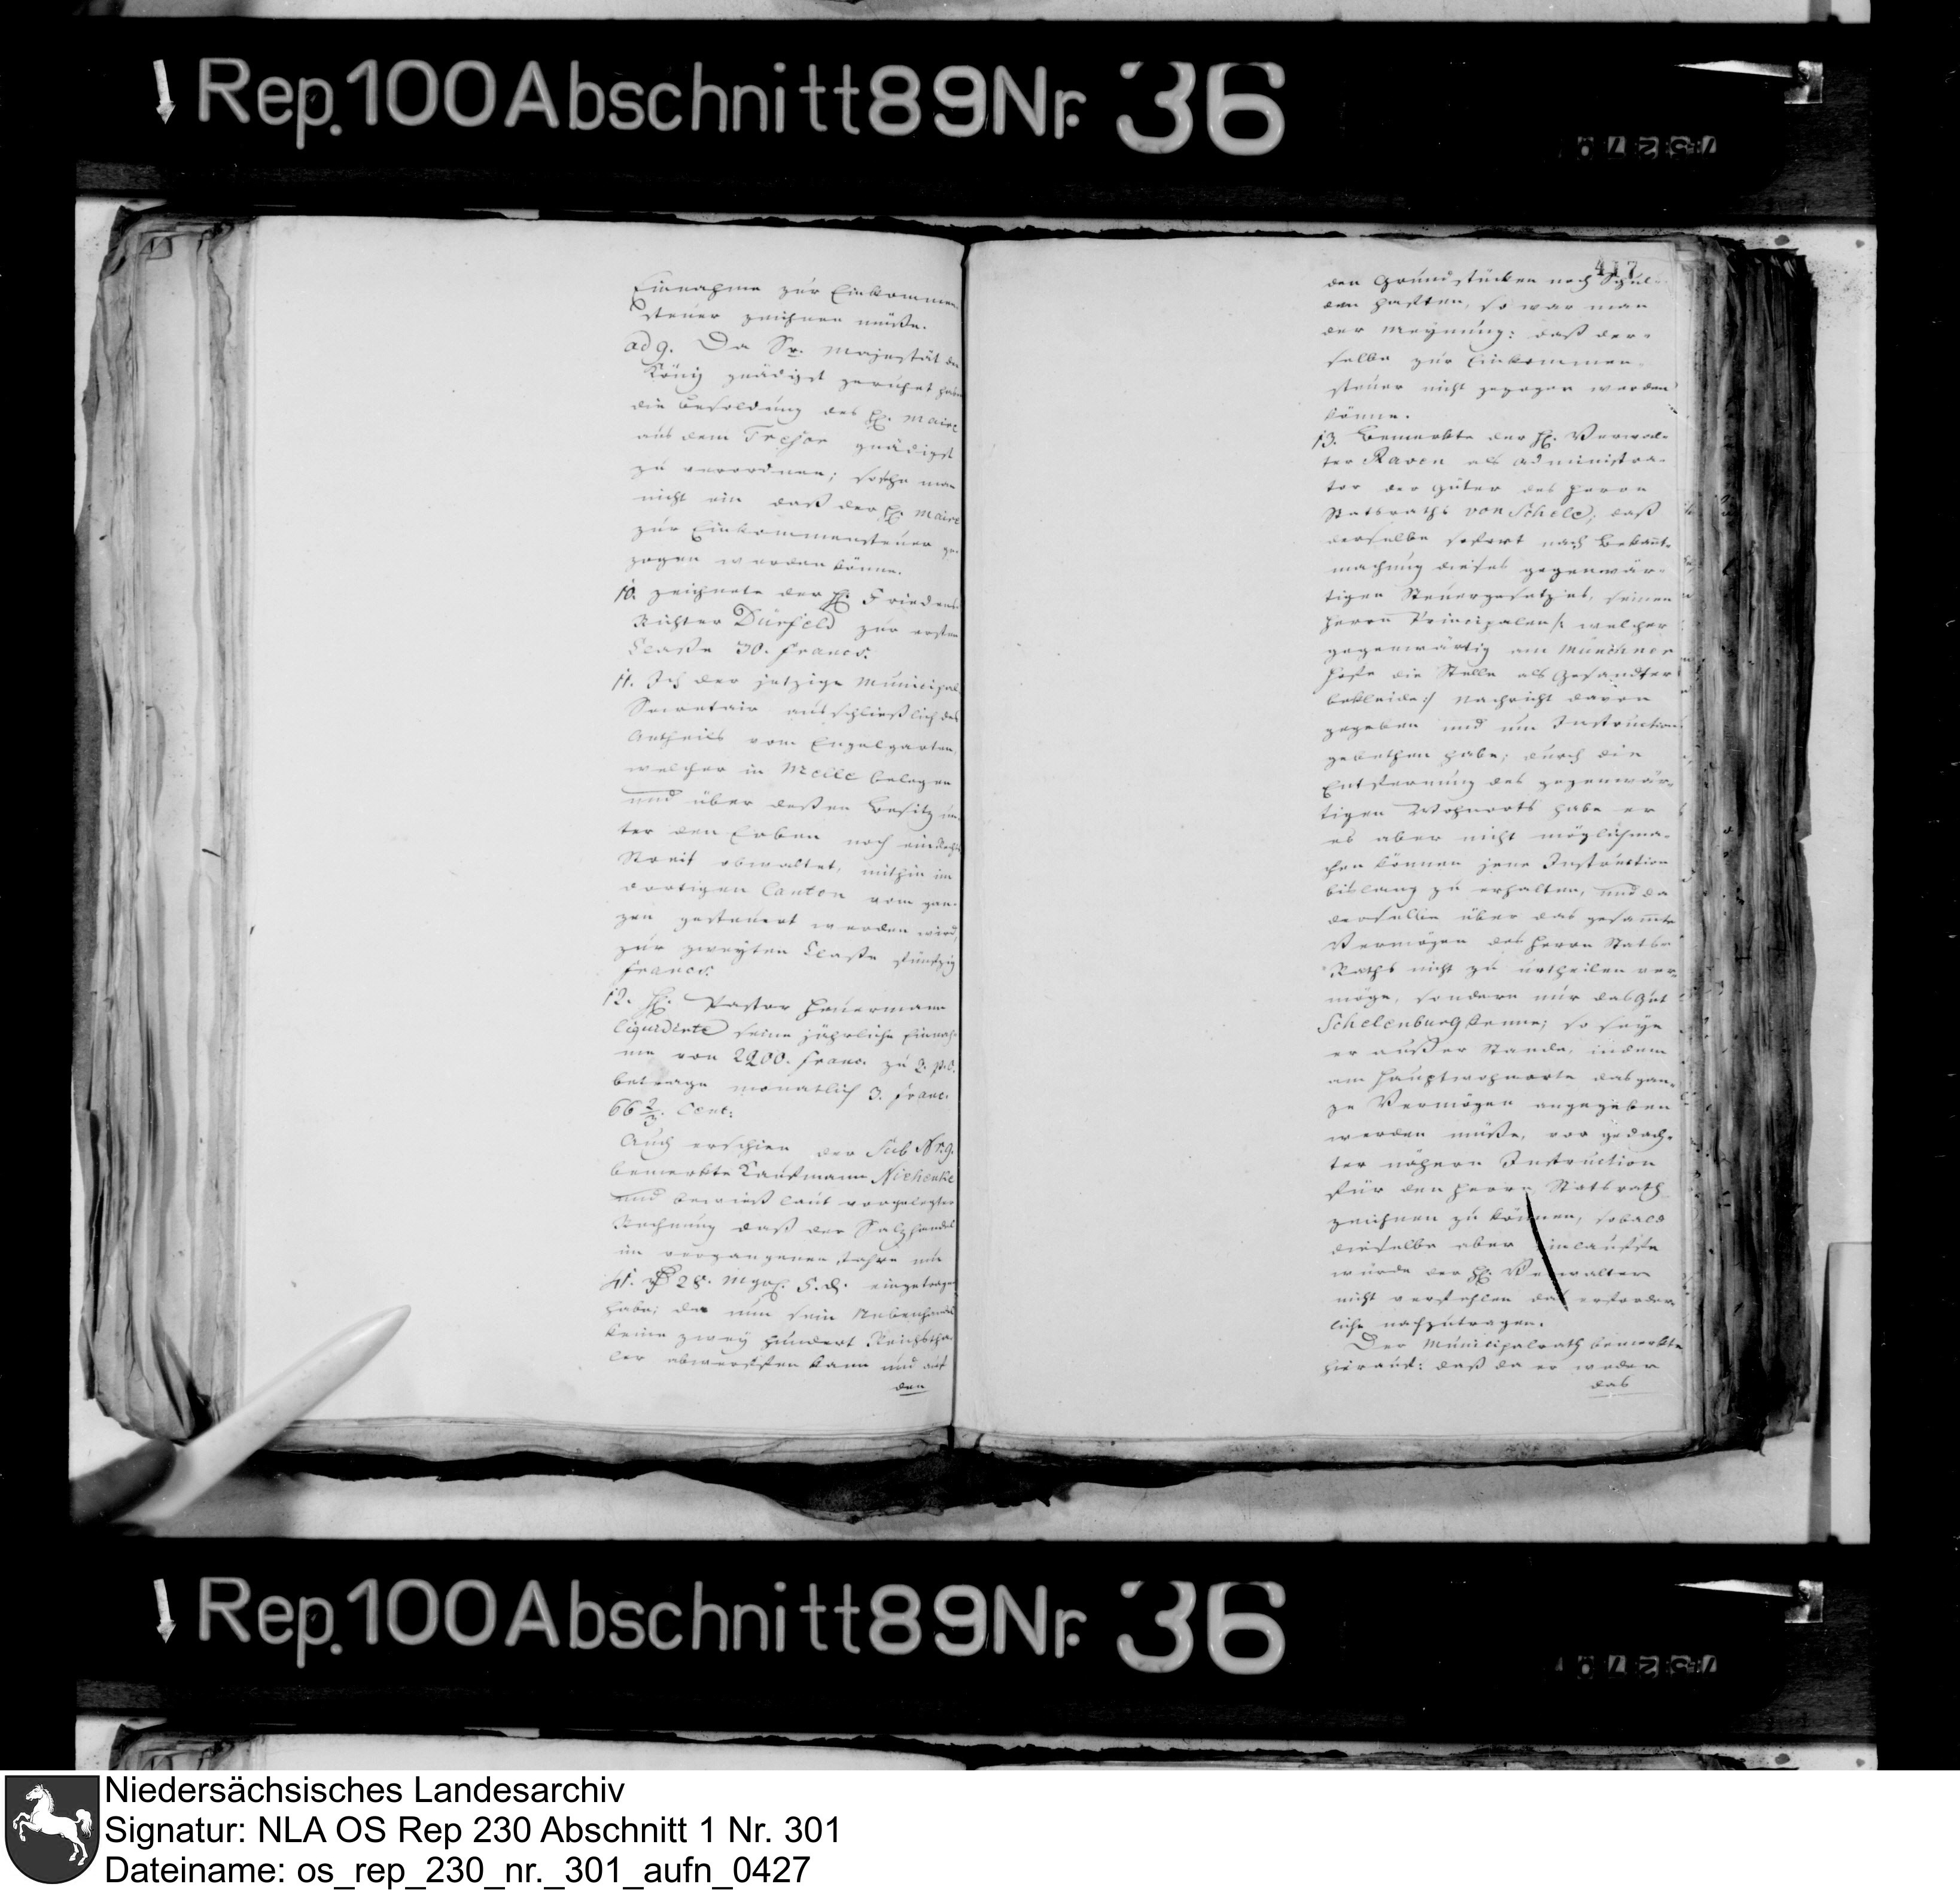 Rep. 100 Abschnitt 89 Nr. 36
Einnahme zur Einkommen-
steuer zeichnen müße.
ad 9. Da Sr. Majestät der
König gnädigst geruhet haben
die Besoldung des H. Maire
aus dem Tresor gnädigst
zu verordnen; so sehe man
nicht ein daß der H. Maire
zur Einkommensteuer ge-
zogen werden könne.
10. zeichnete der H. Friedens-
Richter Dürfeld zur ersten
Classe 30. Francs.
11. Ich der jetzige Municipal
Secretair ausschließlich des
Antheils vom Engelgarten
welcher in Melle belegen
und über deßen Besitz un-
ter den Erben noch
Streit obwaltet, mithin im
dortigen Canton vom gan-
zen gesteuert werden wird,
zur zweyten Classe fünfzig
Francs.
12. H. Pastor Heuermann
liquidirte seine jährliche Einnah-
me von 2200. Franc. zu 2. p.C.
betrage monatlich 3. Franc.
66 2/3. Cent:
Auch erschien der sub Nr. 9.
bemerkte Kaufmann Niehenke
und bewieß laut vorgelegter
Rechnung daß der Salzhandel
im vergangenen Jahre nur
41. rf 28. mgr. 5. d. eingetragen
habe; da nun sein Nebenhandel
keine zwey hundert Reichstha-
ler abwerffen kann und auf
den
417
den Grundstücken noch Schul-
den haften, so war man
der Meynung: daß der-
selbe zur Einkommen-
steuer nicht gezogen werden
könne.
13. Bemerkte der H. Verwal-
ter Raven als Administra-
tor der Güter des Herrn
Statsraths von Schele; daß
derselbe sofort nach Bekant-
machung dieses gegenwär-
tigen Steuergesetzes, seinen
Herrn Principalen /: welcher
gegenwärtig am Münchner
Hofe die Stelle als Gesandter
bekleide :/ Nachricht davon
gegeben und um Instruction
gebethen habe; durch die
Entfernung des gegenwär-
tigen Wohnorts habe er
es aber nicht möglich ma-
chen können jene Instruction
bislang zu erhalten, und da
derselbe über das gesamte
Vermögen des Herrn Stats-
Raths nicht zu urtheilen ver-
möge, sondern nur das Gut
Schelenburg kenne; so seye
er außer Stande, indem
am Hauptwohnorte das gan-
ze Vermögen angegeben
werden müße, vor gedach-
ter nähern Instruction
für den Herrn Statsrath
zeichnen zu können, sobald
dieselbe aber einlauffe
würde der H. Verwalter
nicht verfehlen das erforder-
liche nachzutragen.
Der Municipalrath bemerkte
hierauf: daß da er weder
das
Rep. 100 Abschnitt 89 Nr. 36
Niedersächsisches Landesarchiv
Signatur: NLA OS Rep 230 Abschnitt 1 Nr. 301
Dateiname: os_rep_230_nr._301_aufn_0427